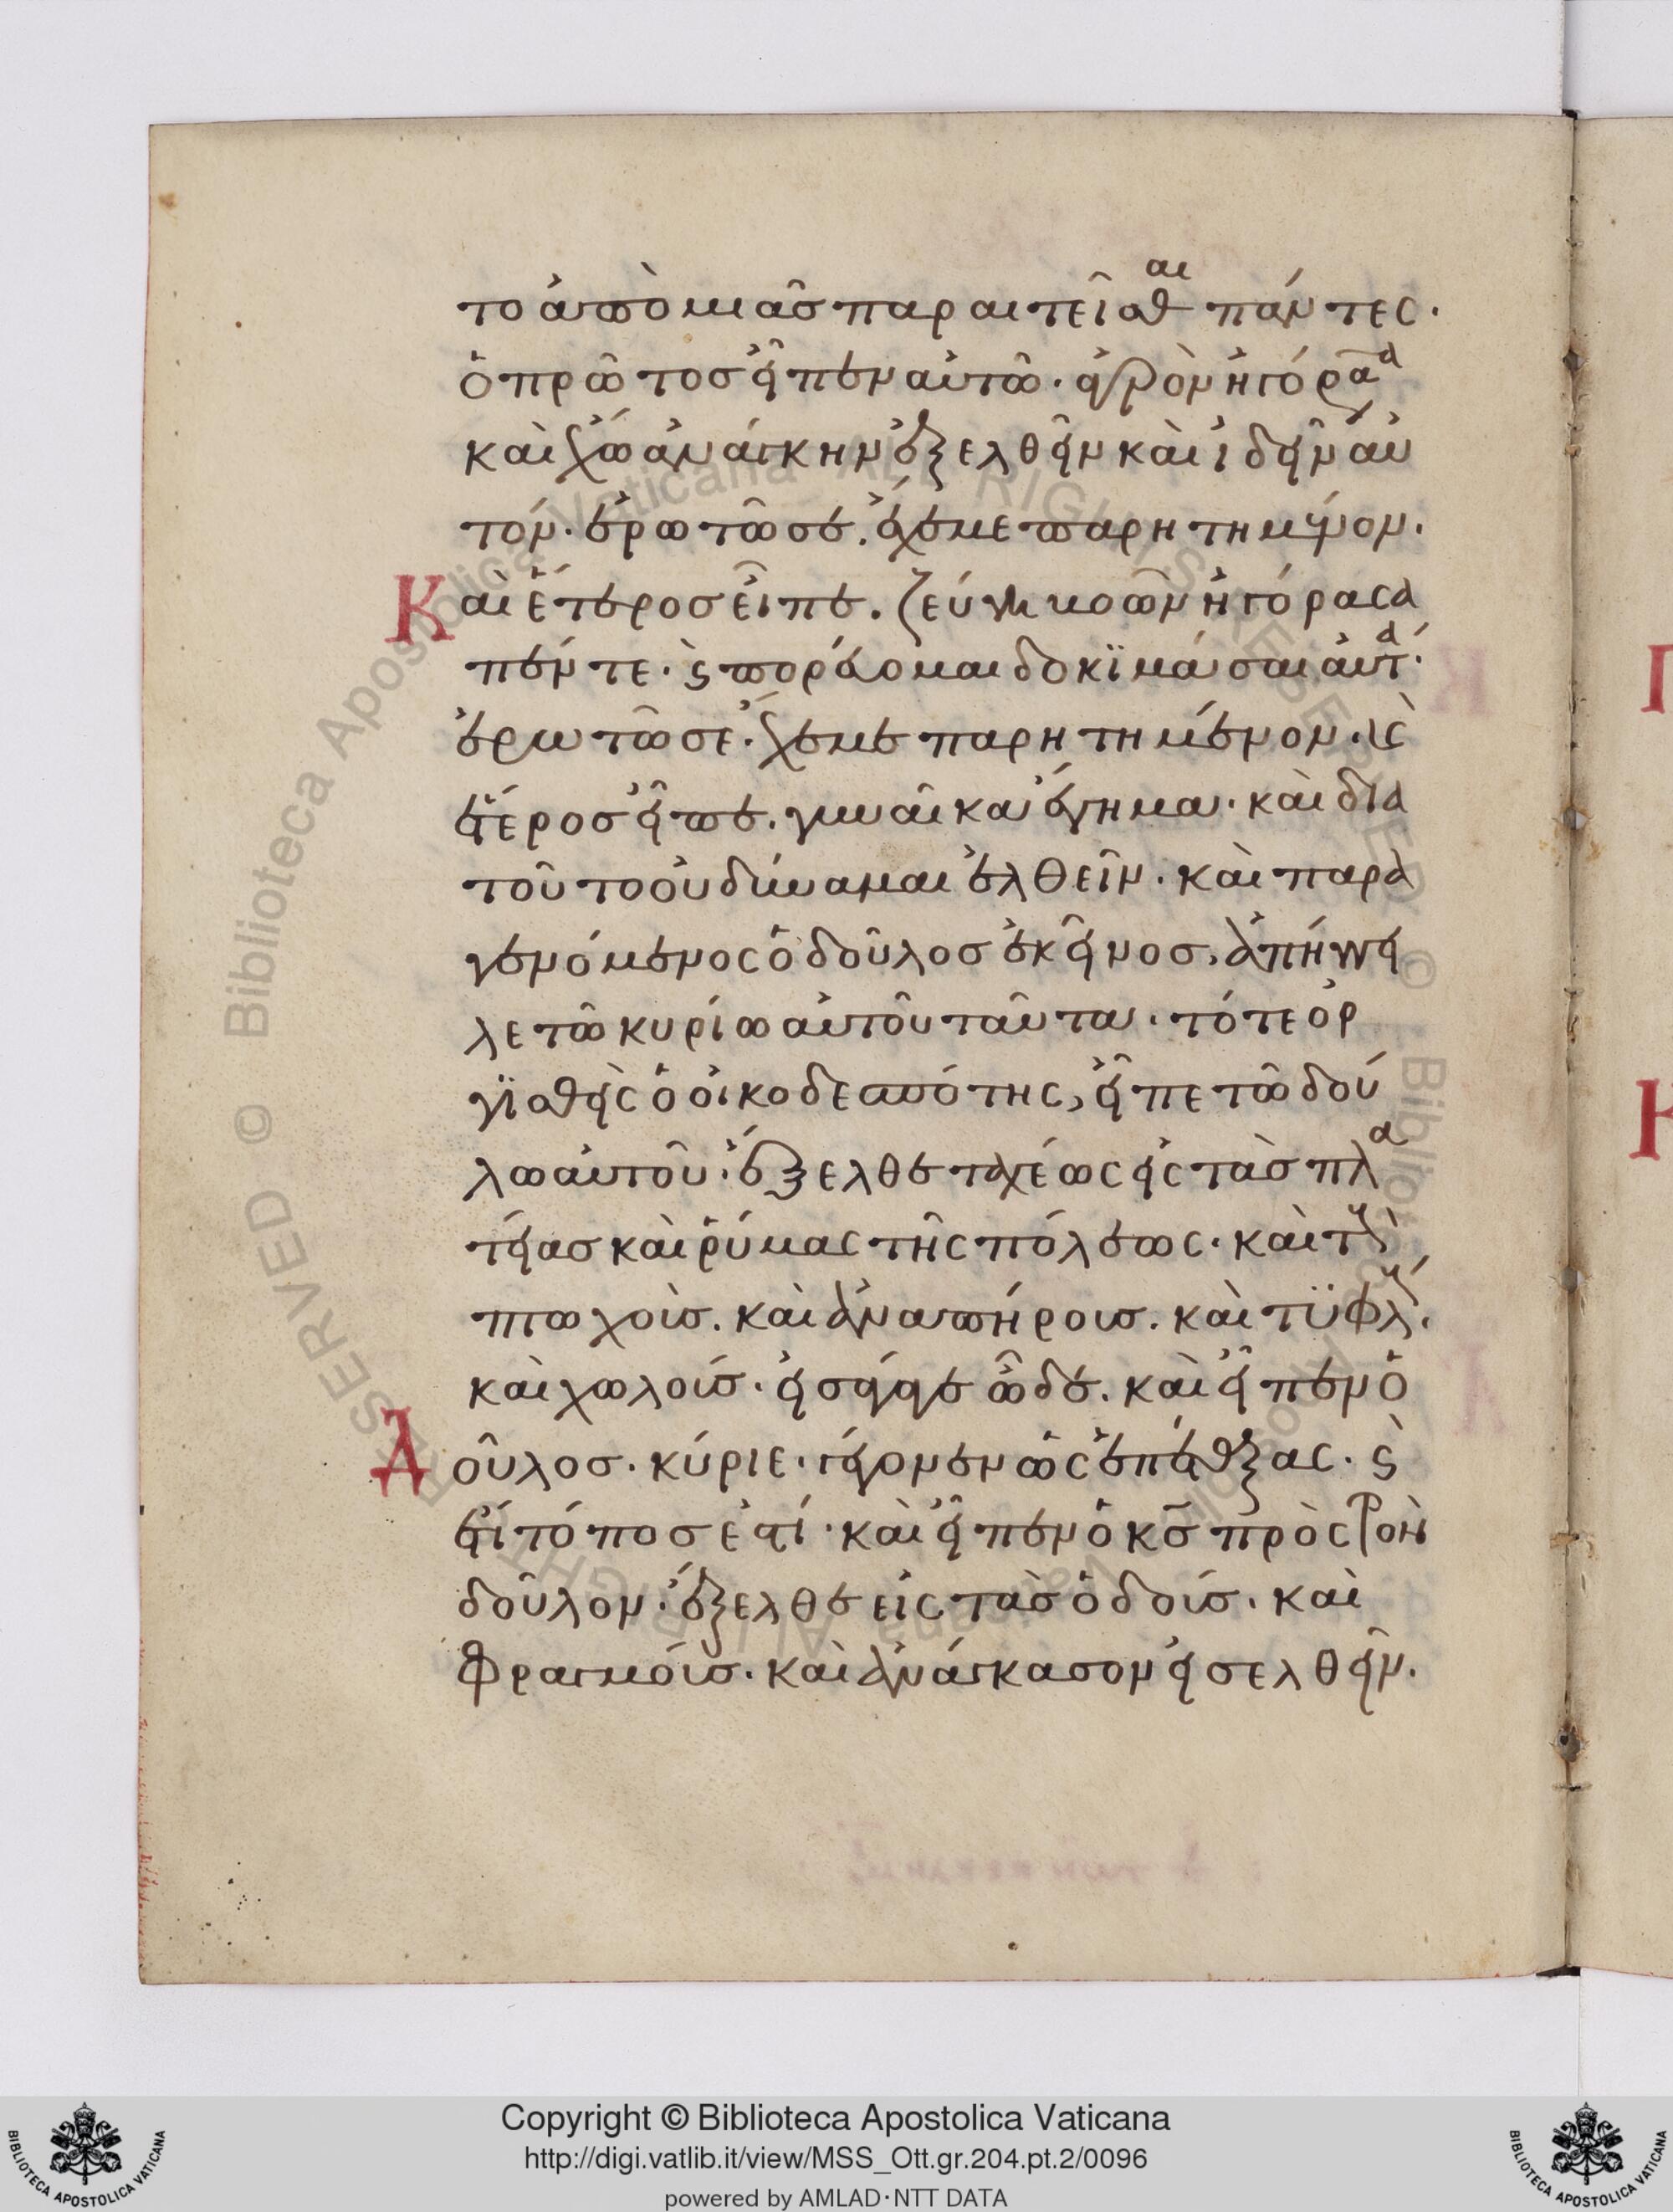 το ἀπὸ μιᾶσ παραιτεῖσθαι πάντες.
ὁ πρῶτοσ εἶπεν αὐτῶ. ἀγρὸν ἠγόρασα
καὶ ἔχω ἀνάγκην ἐξελθεῖν καὶ ἰδεῖν αὐ
τόν. ἐρωτῶ σε. ἔχε με παρητημένον.
Καὶ ἕτεροσ εἶπε. ζεύγη βοῶν ἠγόρασα
πέντε. ϗ πορεύομαι δοκϊμάσαι αὐτά.
ἐρωτῶ σε. ἔχε με παρητημένον. ϗ
ἕτεροσ εἶπε. γυναῖκα ἔγημα. καὶ δια
τοῦτο οὐ δύναμαι ἐλθεῖν. καὶ παρα
γενόμενος ὁ δοῦλοσ ἐκεῖνοσ, ἀπήγγει
λε τῶ κυρίω αὐτοῦ ταῦτα. τότε ὀρ
γϊσθεὶς ὁ οἰκοδεσπότης, εἶπε τῶ δού
λω αὐτοῦ. ἔξελθε ταχέως εἰς τὰσ πλα
τείασ καὶ ῥύμας τῆς πόλεως. καὶ τοὺς
πτωχοὺσ. καὶ ἀναπήρουσ. καὶ τϋφλούς.
καὶ χωλούσ. εἰσάγαγε ὧδε. καὶ εἶπεν ὁ
Δοῦλοσ. κύριε. γέγονεν ὡς ἐπέταξας. ϗ
ἔτι τόποσ ἐστί. καὶ εἶπεν ὁ κσ̅ πρὸς τὸν
δοῦλον. ἔξελθε εἰς τὰσ ὁδούσ. καὶ
φραγμούσ. καὶ ἀνάγκασον εἰσελθεῖν.
Copyright © Biblioteca Apostolica Vaticana
http://digi.vatlib.it/view/MSS_Ott.gr.204.pt.2/0096
powered by AMLAD·NTT DATA
BIBLIOTECA APOSTOLICA VATICANA
BIBLIOTECA APOSTOLICA VATICANA